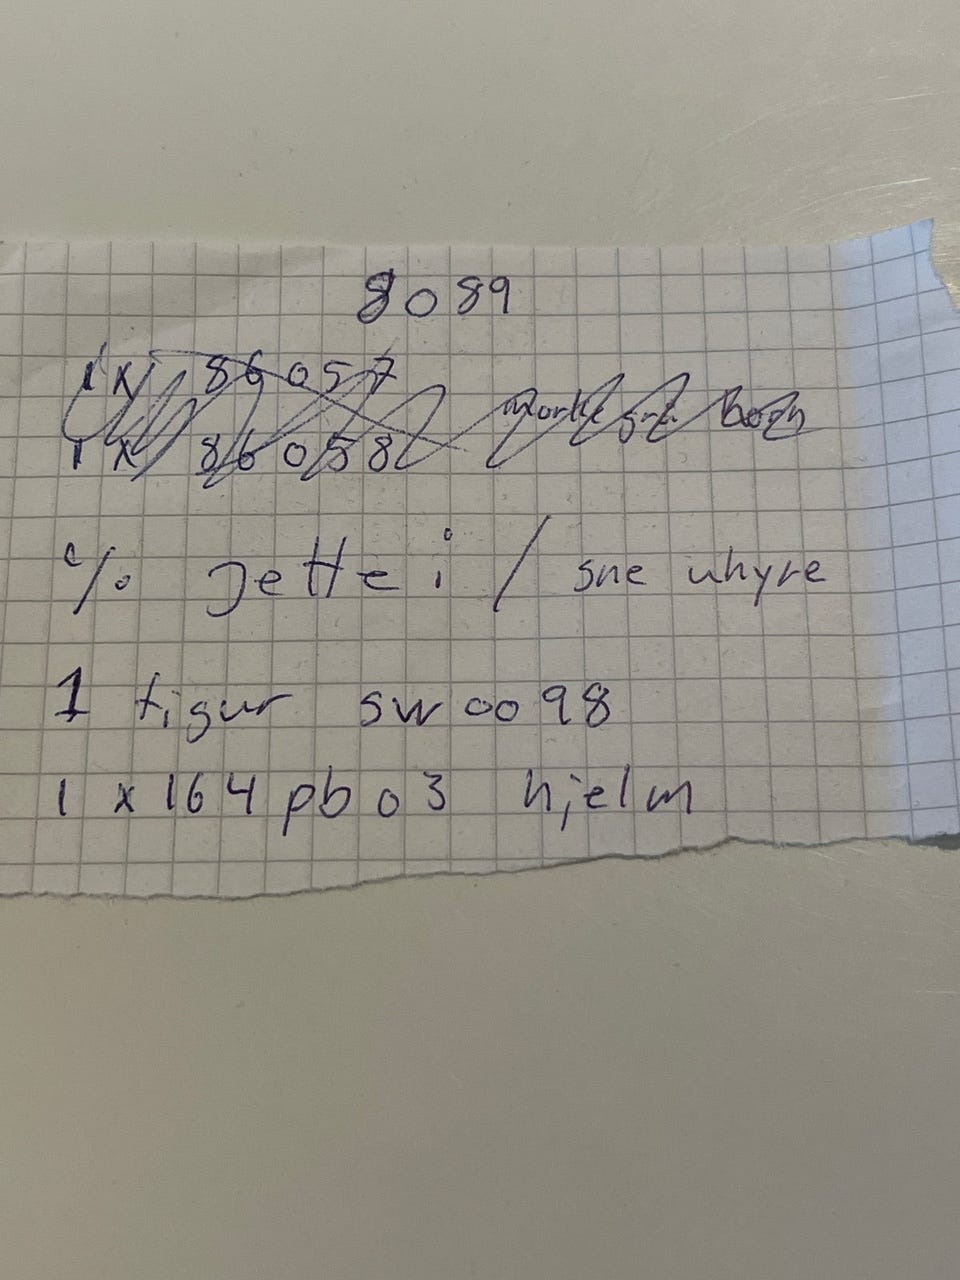 8089
1 x 86057
1 x 86058
% Jette i / sne uhyre
1 figur sw 0098
1 x 164 pb 03 hjelm